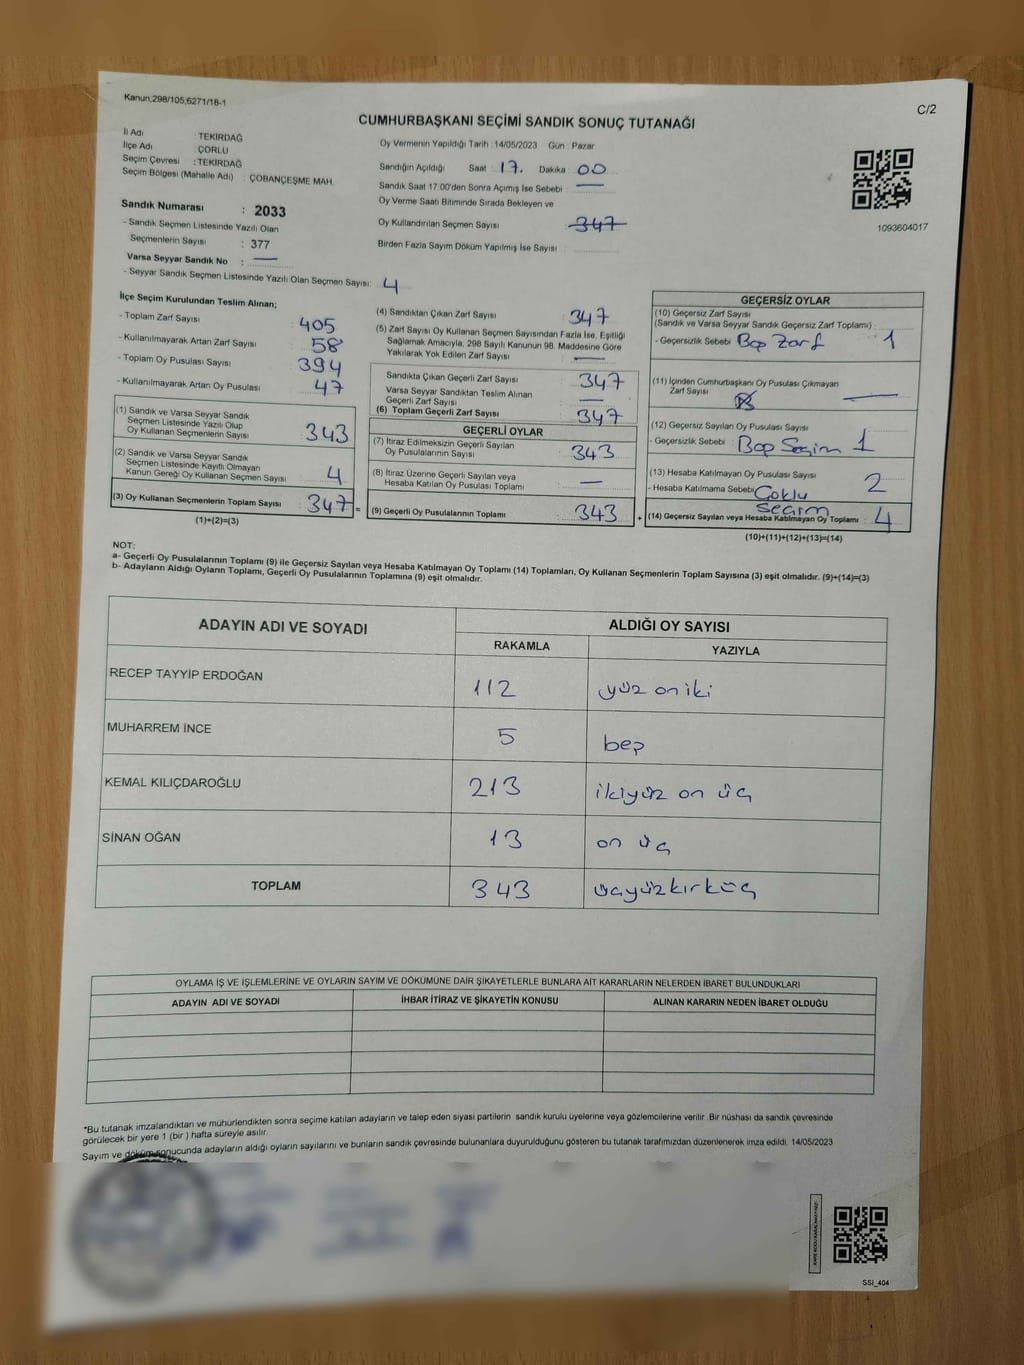 Kanun;298/105;6271/18-1
C/2
CUMHURBAŞKANI SEÇİMİ SANDIK SONUÇ TUTANAĞI
İl Adı : TEKİRDAĞ
İlçe Adı : ÇORLU
Seçim Çevresi : TEKİRDAĞ
Seçim Bölgesi (Mahalle Adı) : ÇOBANÇEŞME MAH.
Oy Vermenin Yapıldığı Tarih :14/05/2023 Gün : Pazar
Sandığın Açıldığı Saat : 17. Dakika : 00
Sandık Saat 17.00'den Sonra Açımış İse Sebebi : —
Oy Verme Saati Bitiminde Sırada Bekleyen ve
Oy Kullandırılan Seçmen Sayısı : 347
Birden Fazla Sayım Döküm Yapılmış İse Sayısı :
1093604017
Sandık Numarası : 2033
- Sandık Seçmen Listesinde Yazılı Olan
Seçmenlerin Sayısı : 377
Varsa Seyyar Sandık No : —
- Seyyar Sandık Seçmen Listesinde Yazılı Olan Seçmen Sayısı: 4
İlçe Seçim Kurulundan Teslim Alınan;
- Toplam Zarf Sayısı : 405
- Kullanılmayarak Artan Zarf Sayısı : 58
- Toplam Oy Pusulası Sayısı : 394
- Kullanılmayarak Artan Oy Pusulası : 47
(1) Sandık ve Varsa Seyyar Sandık
Seçmen Listesinde Yazılı Olup
Oy Kullanan Seçmenlerin Sayısı : 343
(2) Sandık ve Varsa Seyyar Sandık
Seçmen Listesinde Kayıtlı Olmayan
Kanun Gereği Oy Kullanan Seçmen Sayısı : 4
(3) Oy Kullanan Seçmenlerin Toplam Sayısı : 347 =
(1)+(2)=(3)
(4) Sandıktan Çıkan Zarf Sayısı : 347
(5) Zarf Sayısı Oy Kullanan Seçmen Sayısından Fazla İse, Eşitliği
Sağlamak Amacıyla, 298 Sayılı Kanunun 98. Maddesine Göre
Yakılarak Yok Edilen Zarf Sayısı : —
Sandıkta Çıkan Geçerli Zarf Sayısı : 347
Varsa Seyyar Sandıktan Teslim Alınan
Geçerli Zarf Sayısı : —
(6) Toplam Geçerli Zarf Sayısı : 347
GEÇERLİ OYLAR
(7) İtiraz Edilmeksizin Geçerli Sayılan
Oy Pusulasının Sayısı : 343
(8) İtiraz Üzerine Geçerli Sayılan veya
Hesaba Katılan Oy Pusulası Toplamı : —
(9) Geçerli Oy Pusulalarının Toplamı : 343 +
GEÇERSİZ OYLAR
(10) Geçersiz Zarf Sayısı
(Sandık ve Varsa Seyyar Sandık Geçersiz Zarf Toplamı) :
- Geçersizlik Sebebi : Boş Zarf 1
(11) İçinden Cumhurbaşkanı Oy Pusulası Çıkmayan
Zarf Sayısı —
(12) Geçersiz Sayılan Oy Pusulası Sayısı :
- Geçersizlik Sebebi : Boş Seçim 1
(13) Hesaba Katılmayan Oy Pusulası Sayısı : 2
- Hesaba Katılmama Sebebi : Çoklu
Seçim
(14) Geçersiz Sayılan veya Hesaba Katılmayan Oy Toplamı : 4
(10)+(11)+(12)+(13)=(14)
NOT:
a- Geçerli Oy Pusulalarının Toplamı (9) ile Geçersiz Sayılan veya Hesaba Katılmayan Oy Toplamı (14) Toplamları, Oy Kullanan Seçmenlerin Toplam Sayısına (3) eşit olmalıdır. (9)+(14)=(3)
b- Adayların Aldığı Oyların Toplamı, Geçerli Oy Pusulalarının Toplamına (9) eşit olmalıdır.
ADAYIN ADI VE SOYADI ALDIĞI OY SAYISI
RAKAMLA YAZIYLA
RECEP TAYYİP ERDOĞAN 112 yüz oniki
MUHARREM İNCE 5 beş
KEMAL KILIÇDAROĞLU 213 ikiyüz on üç
SİNAN OĞAN 13 on üç
TOPLAM 343 üçyüzkırküç
OYLAMA İŞ VE İŞLEMLERİNE VE OYLARIN SAYIM VE DÖKÜMÜNE DAİR ŞİKAYETLERLE BUNLARA AİT KARARLARIN NELERDEN İBARET BULUNDUKLARI
ADAYIN ADI VE SOYADI İHBAR İTİRAZ VE ŞİKAYETİN KONUSU ALINAN KARARIN NEDEN İBARET OLDUĞU
*Bu tutanak imzalandıktan ve mühürlendikten sonra seçime katılan adayların ve talep eden siyasi partilerin sandık kurulu üyelerine veya gözlemcilerine verilir .Bir nüshası da sandık çevresinde
görülecek bir yere 1 (bir ) hafta süreyle asılır.
Sayım ve döküm sonucunda adayların aldığı oyların sayılarını ve bunların sandık çevresinde bulunanlara duyurulduğunu gösteren bu tutanak tarafımızdan düzenlenerek imza edildi. 14/05/2023
SSİ_404